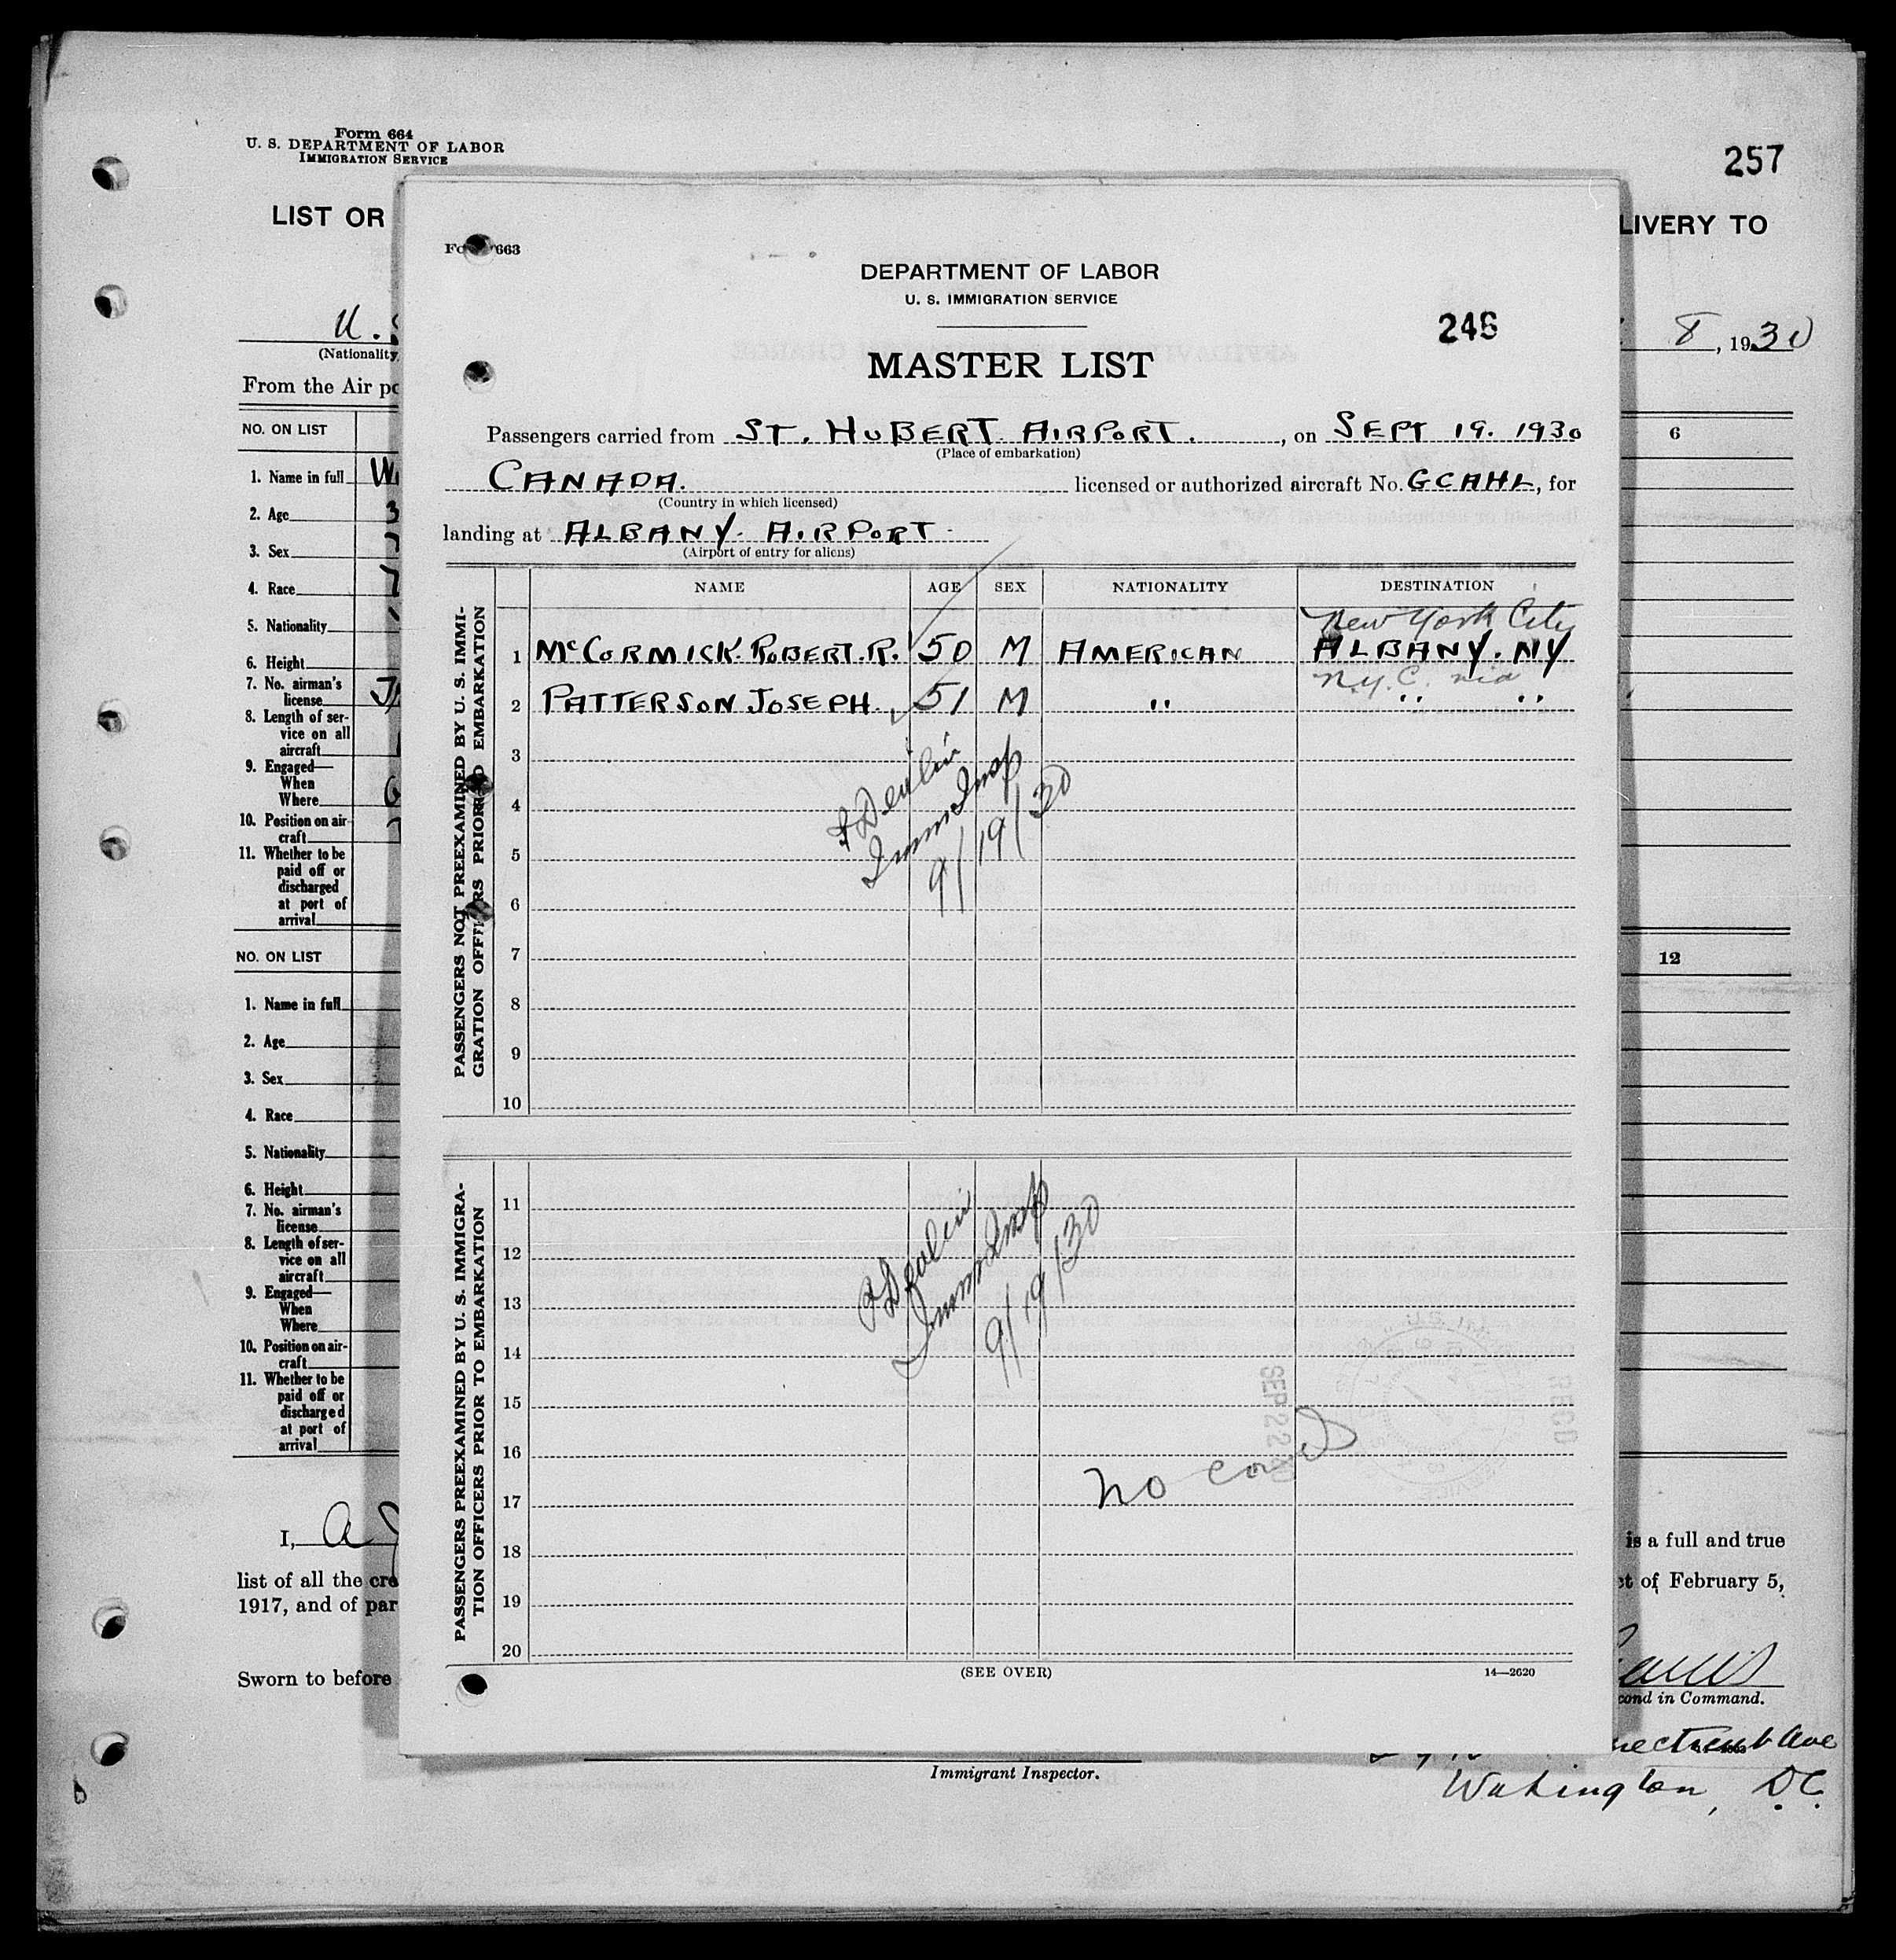 Form 664
U. S. DEPARTMENT OF LABOR
IMMIGRATION SERVICE
257
LIST OR
LIVERY TO
(Nationality
8, 1930
From the Air po
NO. ON LIST
6
1. Name in full
2. Age
3. Sex
4. Race
5. Nationality
6. Height
7. No. airman's
license
8. Length of ser-
vice on all
aircraft
9. Engaged—
When
Where
10. Position on air-
craft
11. Whether to be
paid off or
discharged
at port of
arrival
NO. ON LIST
12
1. Name in full
2. Age
3. Sex
4. Race
5. Nationality
6. Height
7. No. airman's
license
8. Length of ser-
vice on all
aircraft
9. Engaged—
When
Where
10. Position on air-
craft
11. Whether to be
paid off or
discharged
at port of
arrival
I, A
is a full and true
list of all the cre
ct of February 5,
1917, and of par
Sworn to before
cond in Command.
Ave
Wahington, D.C.
Immigrant Inspector.
663
DEPARTMENT OF LABOR
U. S. IMMIGRATION SERVICE
246
MASTER LIST
Passengers carried from ST. HUBERT AIRPORT., on SEPT 19. 1930
(Place of embarkation)
CANADA. licensed or authorized aircraft No. GCAHL, for
(Country in which licensed)
landing at ALBANY. AIRPORT
(Airport of entry for aliens)
NAME AGE SEX NATIONALITY DESTINATION
New York City
1 McCORMICK. ROBERT. R. 50 M AMERICAN ALBANY. NY
N.Y.C. via
2 PATTERSON JOSEPH. 51 M " " "
3
4
5
6
7
8
9
10
PASSENGERS NOT PREEXAMINED BY U. S. IMMI-
GRATION OFFICERS PRIOR TO EMBARKATION
Devlin
Imm Insp
9/19/30
11
12
13
14
15
16
17
18
19
20
PASSENGERS PREEXAMINED BY U. S. IMMIGRA-
TION OFFICERS PRIOR TO EMBARKATION
Devlin
Imm Insp
9/19/30
SEP 22
REC'D
no card
(SEE OVER)
14—2620